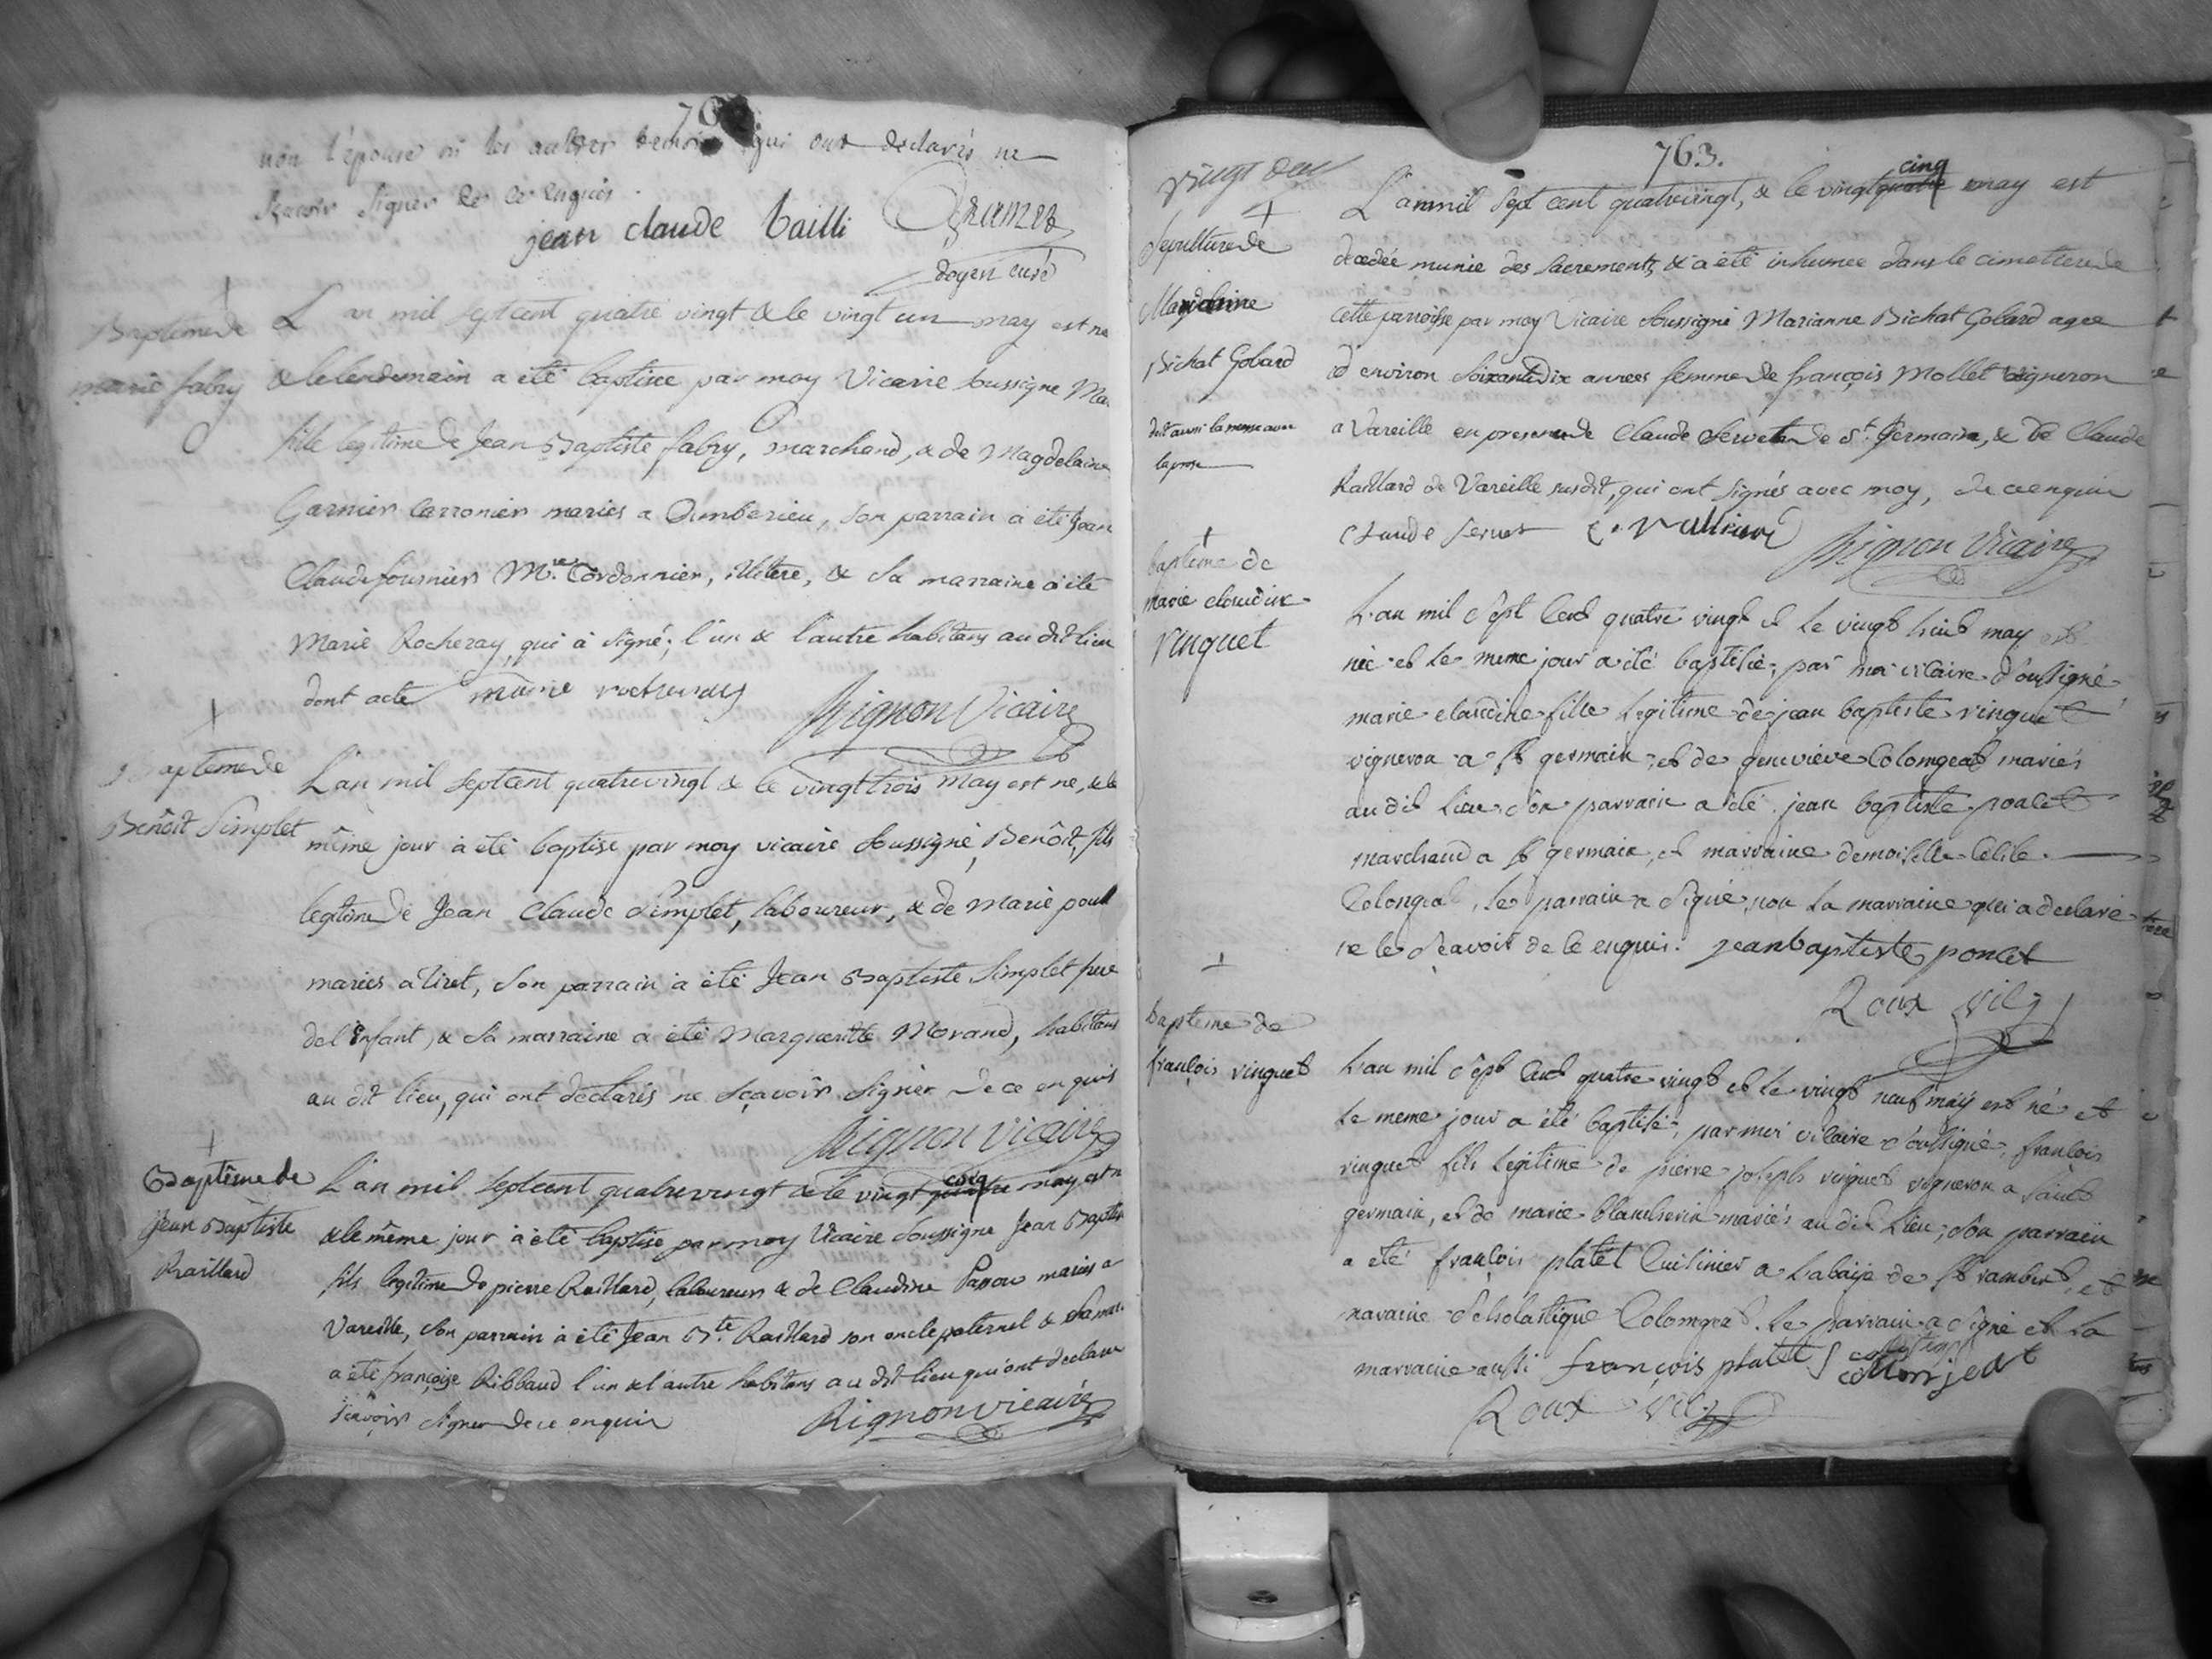 non l'épouse ni les autres temoins qui ont declarés ne
sçavoir signer de ce enquis.
jean claude bailli
doyen curé
Baptême de
marie fabry
L'an mil sept cent quatre vingt & le vingt un may est né
& le lendemain a été baptisée par moy Vicaire soussigné Ma
fille legitime de Jean Baptiste fabry, marchand, & de Magdelaine
Garnier Carronier mariés a Ambérieu, son parrain à été Jean
Claude fournier M.re Cordonnier, illitere, & sa marraine à été
Marie Rocheray, qui à signé; l'un & l'autre habitans au dit lieu
dont acte
Rignon Vicaire
Baptême de
Benôit Simplet
L'an mil sept cent quatre vingt & le vingt trois May est né, & le
même jour à été baptisé par moy vicaire soussigné, Benôit, fils
legitime de Jean Claude Simplet, laboureur, & de Marie
mariés a tiret, son parrain à été Jean Baptiste Simplet frere
de l'Enfant, & sa marraine à été Marguerite Morand, habitans
au dit lieu, qui ont déclarés ne sçavoir signer de ce enquis
Rignon Vicaire
Baptême de
Jean Baptiste
Raillard
L'an mil sept cent quatre vingt & le vingt cinq may est n
& le même jour à été baptisé par moy Vicaire soussigné Jean Baptis
fils legitime de pierre Raillard, laboureur & de Claudine mariés a
Vareille, son parrain à été Jean B.te Raillard son oncle paternel & sa mar.
a été françoise Ribbaud l'un & l'autre habitans au dit lieu qui ont declaré
sçavoir signer de ce enquis
Rignon vicaire
763.
Sepulture de
Magdelaine
Bichat Gobard
L'an mil sept cent quatre vingt, & le vingt cinq may est
decedée munie des sacrements, & a été inhumée dans le cimetiere de
cette parroisse par moy Vicaire soussigné Marianne Bichat Gobard agée
d'environ soixante dix années femme de françois Mollet vigneron
a Vareille en presence de Claude Servet de S.t Germain, & de Claude
Raillard de Vareille susdit, qui ont signés avec moy, de ce enquis
Claude Servet
Rignon Vicaire
baptême de
marie claudine
Vinguet
L'an mil sept cent quatre vingt et le vingt huit may est
née et le meme jour a été baptisée, par moi vicaire soussigné
marie claudine fille legitime de jean baptiste vinguet
vigneron a st germain, et de geneviève Colomgeat mariés
au dit lieu son parrain a été jean baptiste poncet
marchand a st germain, et marraine demoiselle Cécile
Colongeat, le parrain a signé, non la marraine qui a declaré
ne le sçavoir de ce enquis. jean baptiste poncet
Roux vic.
Baptême de
françois vinguet
L'an mil sept cent quatre vingt et le vingt neuf may est né et
le meme jour a été baptisé, par moi vicaire soussigné, françois
vinguet fils legitime de pierre joseph vinguet vigneron a saint
germain, et de marie blancherin mariés au dit lieu, son parrain
a été françois platet Cuisinier a L'abaije de st rambert, et
maraine scholastique Colomgeat. le parrain a signé et la
marraine aussi françois platet
Roux vic.